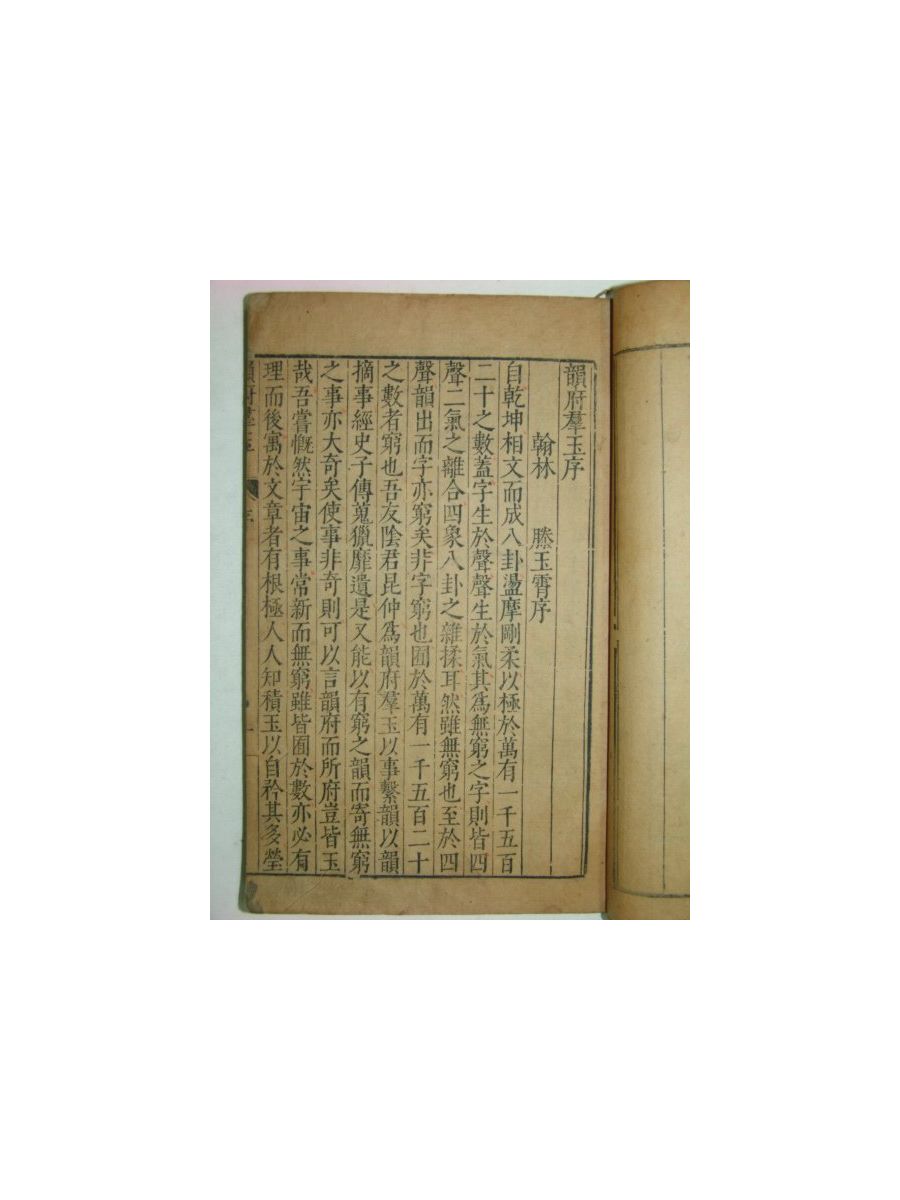 韻府羣玉序
翰林 滕玉霄序
自乾坤相文而成八卦盪摩剛柔以極於萬有一千五百
二十之數蓋字生於聲聲生於氣其爲無窮之字則皆四
聲二氣之離合四象八卦之雜揉耳然雖無窮也至於四
聲韻出而字亦窮矣非字窮也囿於萬有一千五百二十
之數者窮也吾友陰君昆仲爲韻府羣玉以事繫韻以韻
摘事經史子傳蒐獵靡遺是又能以有窮之韻而寄無窮
之事亦大奇矣使事非奇則可以言韻府而所府豈皆玉
哉吾嘗慨然宇宙之事常新而無窮雖皆囿於數亦必有
理而後寓於文章者有根極人人知積玉以自矜其多瑩
韻府羣玉